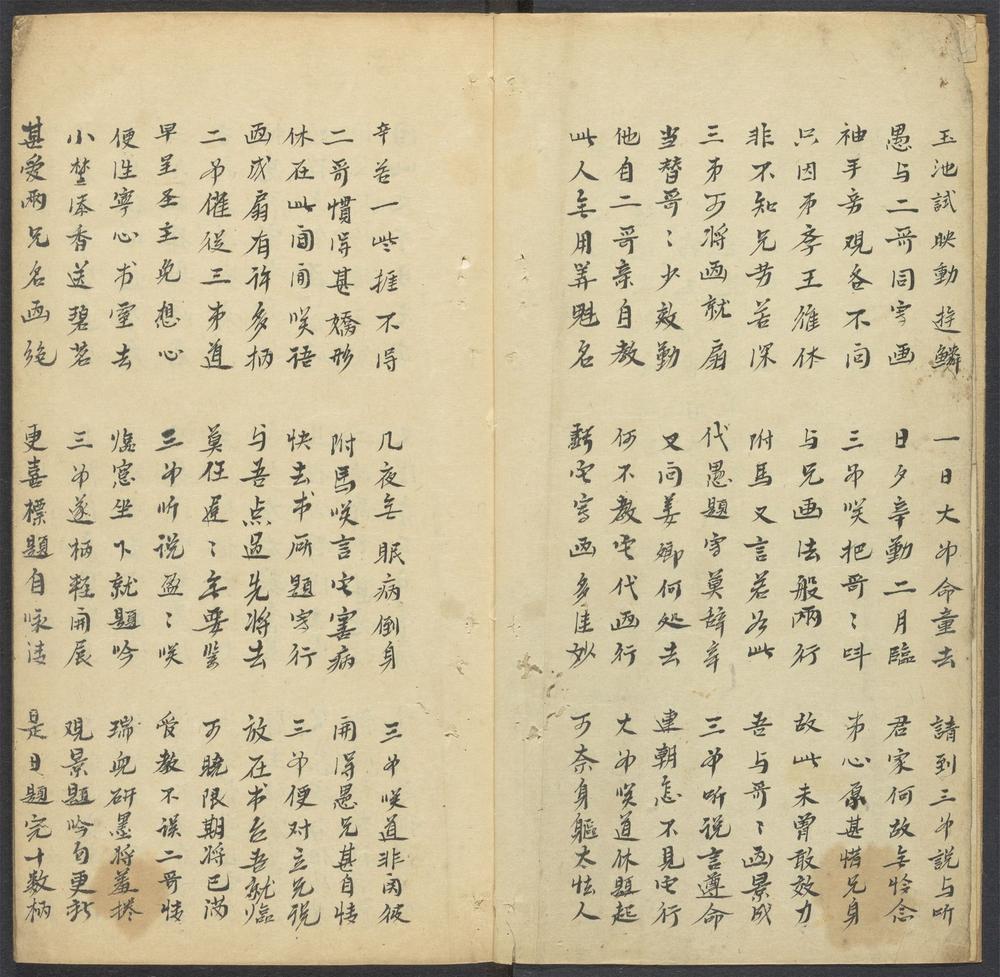 玉池試映動遊鱗　一日大弟命童去　請到三弟說与听
愚与二哥同写画　日夕辛勤二月臨　君家何故无怜念
袖手旁观各不问　三弟咲把哥〻叫　弟心原甚惜兄身
只因弟孝王維体　与兄画法般兩行　故此未曾敢效力
非不知兄劳苦深　附馬又言若如此　吾与哥〻画景成
三弟可将画就扇　代愚題写莫辞辛　三弟听说言遵命
当替哥〻少效勤　又问姜卿何处去　連朝怎不見它行
他自二哥亲自教　何不教它代画行　大弟咲道休題起
此人无用算魁名　虧它写画多佳妙　可奈身軀太怯人
辛苦一些捱不得　几夜无眠病倒身　三弟咲道非関彼
二哥慣得甚嬌形　附馬咲言它害病　開得愚兄甚自情
休在此间闲咲語　快去书厨題写行　三弟便对立兄说
画成扇有许多柄　与吾点過先将去　放在书台吾就临
二弟催從三弟道　莫任遲〻无要紧　可曉限期将已满
早呈圣主免想心　三弟听说盈〻咲　受教不误二哥情
便往寧心书室去　临窓坐下就題吟　瑞兒研墨将捲
小添香送碧茗　三弟逐柄輕開展　观景題吟句更新
甚爱兩兄名画絶　更喜標題自咏清　是日題完十数柄